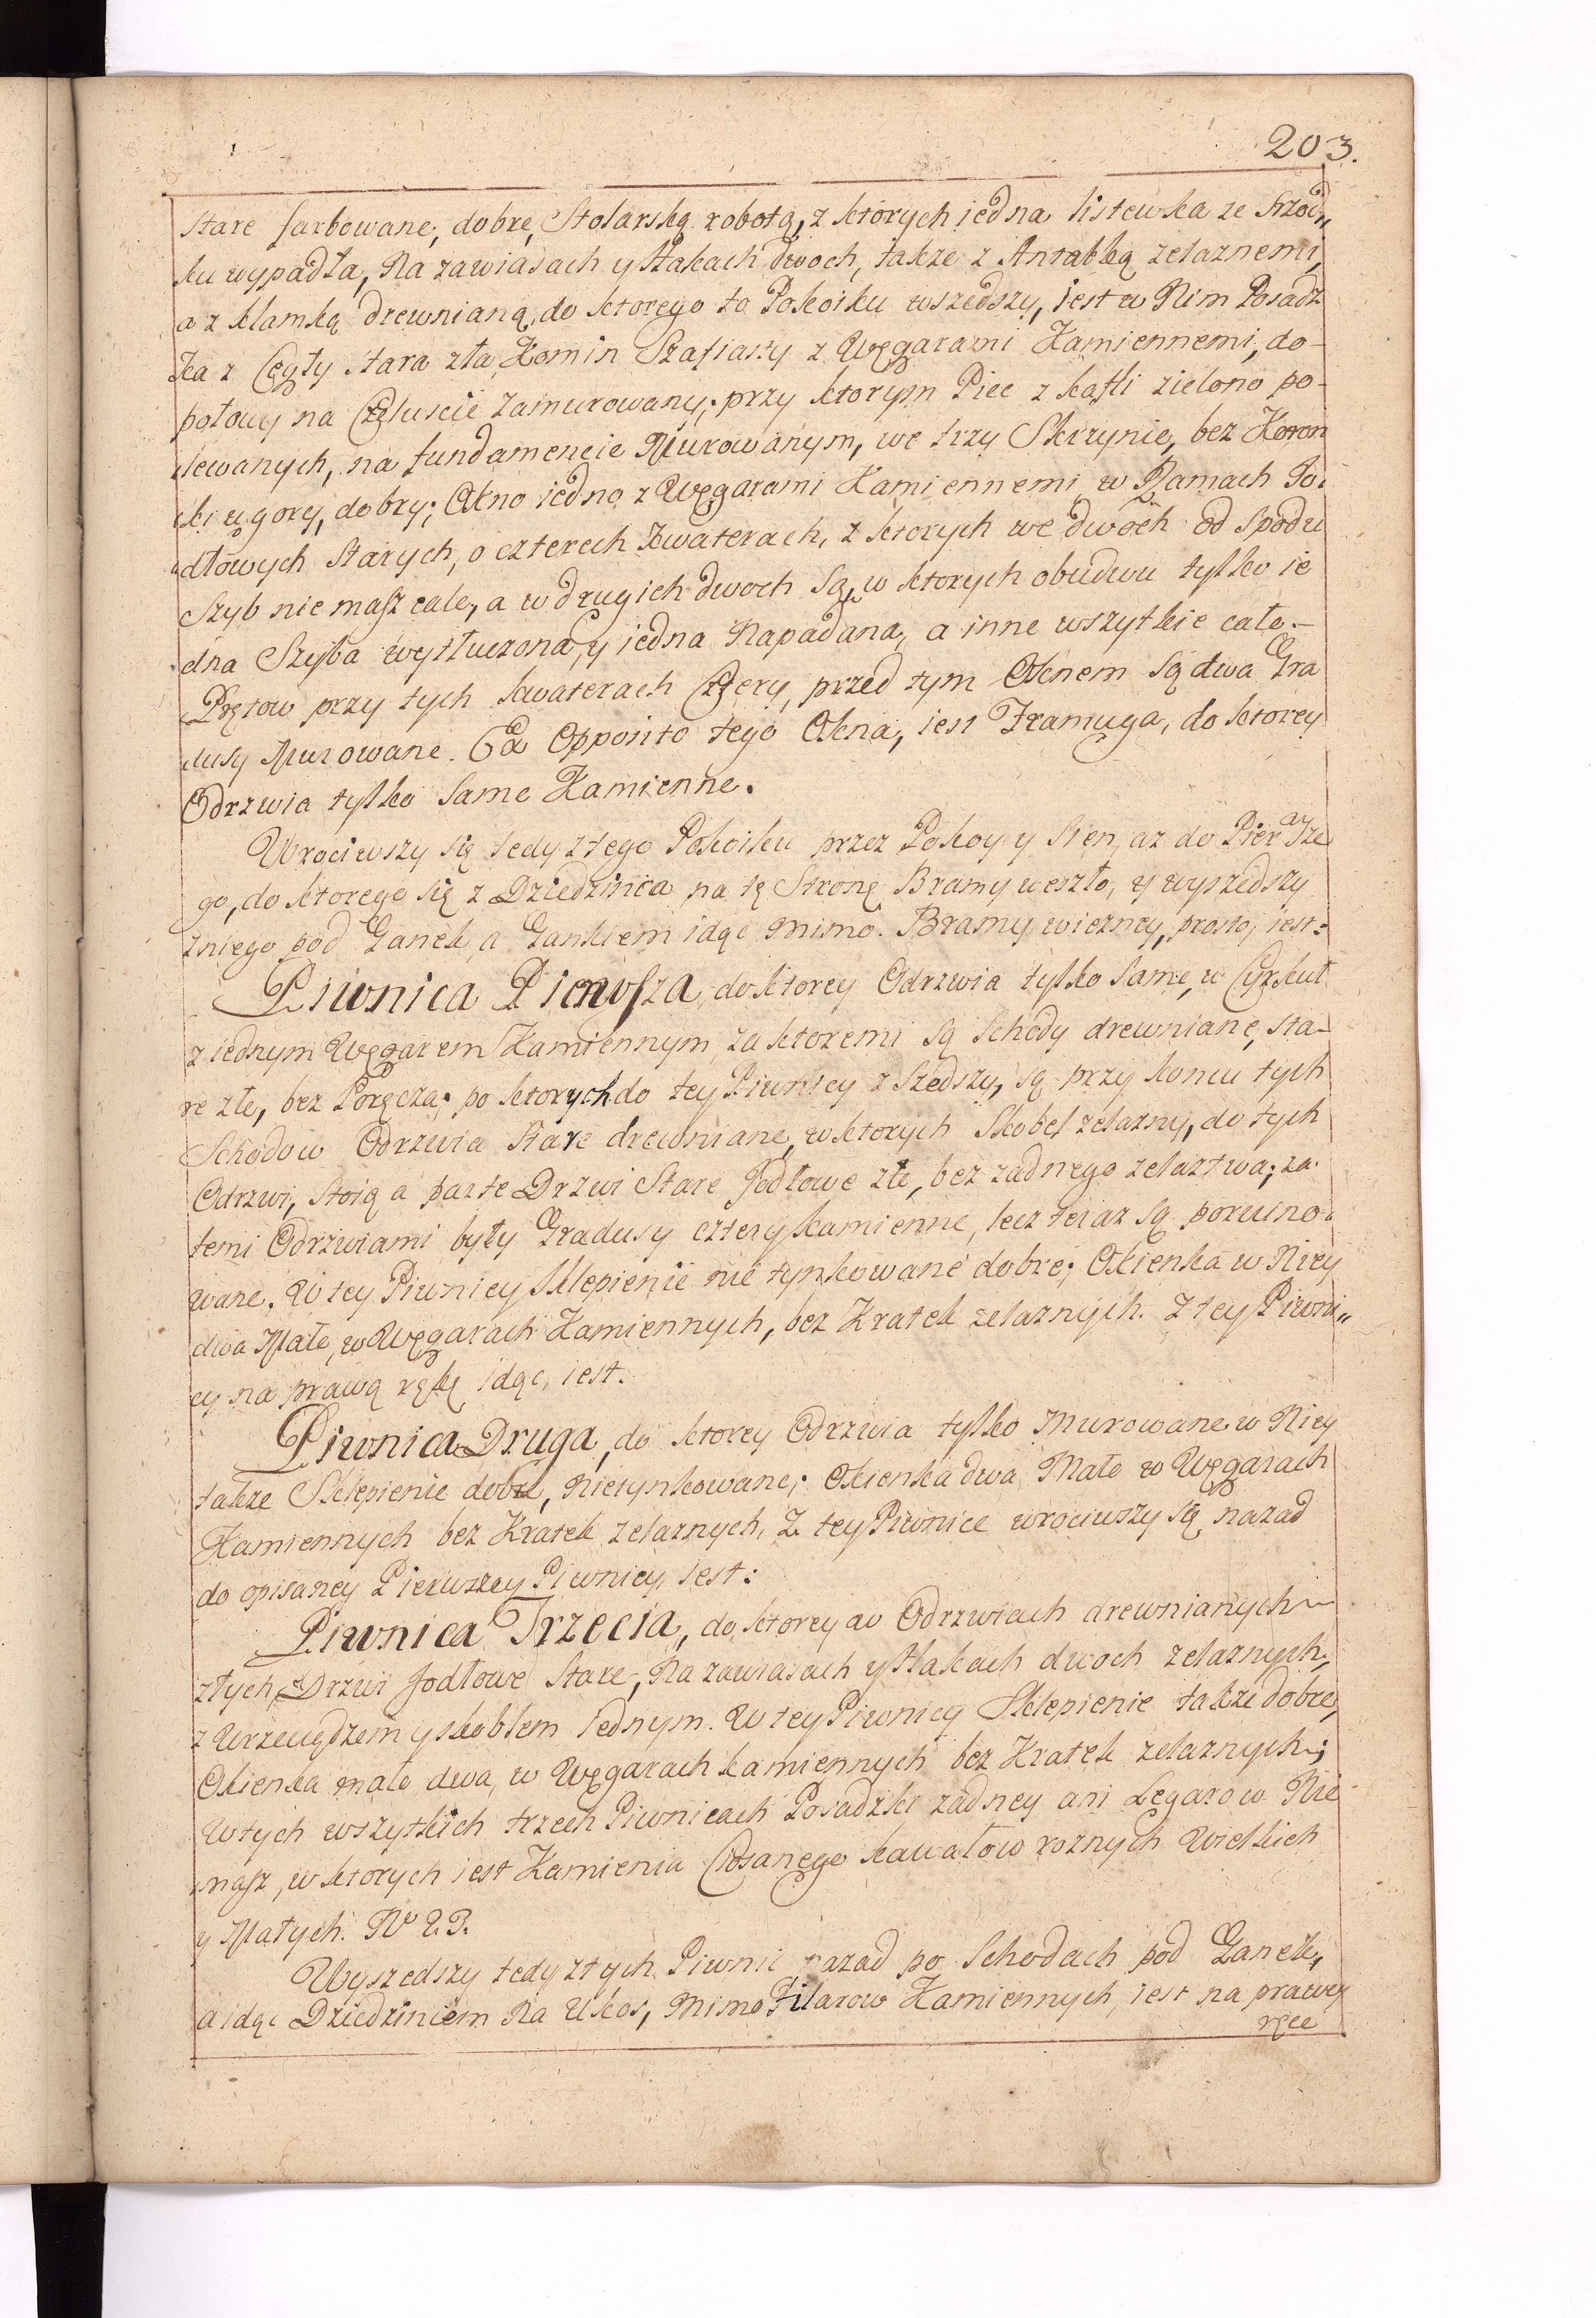 203.
stare farbowane, dobre, Stolarską robotą, z ktorych iedna listewka ze srzod„
ku wypadła, Na zawiasach y Hakach dwoch, także z Antabką zelaznemi,
a z klamką drewnianą, do ktorego to Pokoiku wszedszy, iest w Nim Posadz
ka z Cegły stara zła, Komin Szafiasty z Węgarami Kamiennemi, do-
połowy na Czeluście Zamurowany; przy ktorym Piec z kafli zielono po-
lewanych, na fundamencie Murowanym, we trzy Skrzynie, bez Koron
ki u gory, dobry; Okno iedno z Węgarami Kamiennemi w Ramach Jo-
dłowych starych, o czterech kwaterach, z ktorych we dwoch od spodu
Szyb nie masz cale, a w drugich dwoch są, w ktorych obudwu tylko ie
dna Szyba wytłuczona, y iedna Napadana, a inne wszytkie całe.-
Prętow przy tych kwaterach Cztery, przed tym Oknem są dwa Gra
dusy Murowane. Ex Opposito tego Okna, iest Framuga, do ktorey
Odrzwia tylko same Kamienne.
Wrociwszy się tedy z tego Pokoiku przez Pokoy y Sien, az do Pierwsze
go, do ktorego się z Dziedzinca na tę Stronę Bramy weszło, y wyszedszy
z niego pod Ganek, a Gankiem idąc Mimo Bramy wiezney, prosto, iest:
Piwnica Pierwsza, do ktorey Odrzwia tylko same, w Cyrkuł
z iednym Węgarem Kamiennym, za ktoremi są schody drewniane, sta-
re złe, bez Poręcza; po ktorych do tey Piwnicy zszedszy, są przy koncu tych
Schodow Odrzwia stare drewniane, w ktorych Skobel zelazny, do tych
Odrzwi, stoią a parte Drzwi Stare Jodłowe złe, bez zadnego zelaztwa; za
temi Odrzwiami były Gradusy cztery kamienne, lecz teraz są poruino-
wane. W tey Piwnicy Sklepienie nie tynkowane dobre; Okienka w Niey
dwa Małe, w Węgarach Kamiennych, bez Kratek zelaznych. Z tey Piwni„
cy na prawą rękę idąc, iest.
Piwnica Druga, do ktorey Odrzwia tylko Murowane w Niey
także Sklepienie dobre, Nietynkowane; Okienka dwa Małe w Węgarach
Kamiennych bez Kratek zelaznych, Z tey Piwnice wrociwszy się nazad
do opisaney Pierwszey Piwnicy, iest:
Piwnica Trzecia, do ktorey w Odrzwiach drewnianych
złych, Drzwi Jodłowe stare, Na zawiasach y Hakach dwoch zelaznych,
z Wrzeciądzem y skoblem Iednym. W tey Piwnicy Sklepienie także dobre,
Okienka małe dwa, w Węgarach kamiennych bez Kratek zelaznych;
W tych wszytkich trzech Piwnicach Posadzki zadney ani Legarow Nie
masz, w ktorych iest Kamienia Ciosanego kawałow roznych Wielkich
y Małych. No 23.
Wyszedszy tedy z tych Piwnic nazad po Schodach pod Ganek,
a idąc Dziedzincem Na Ukos, Mimo Filarow Kamiennych, iest na prawey
ręce